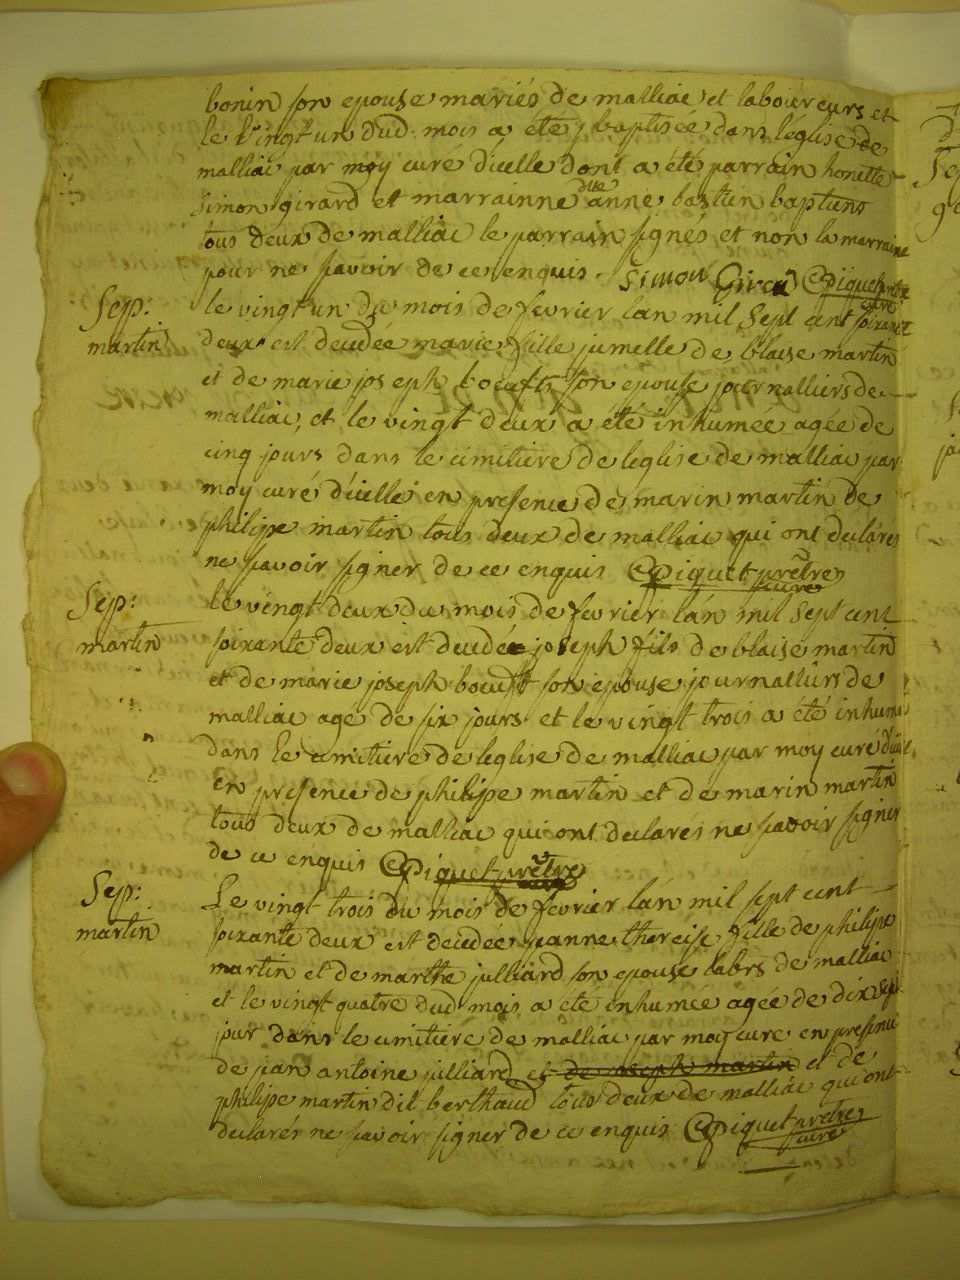 bonin son epouse mariés de malliac et laboureurs et
le vingt un dud. mois a eté baptisée dans léglise de
malliac par moy curé d'icelle dont a été parrain honette
simon girard et marrainne dlle anne bastin baptiens
tous deux de malliac le parrain signés et non la marraine
pour ne savoir de ce enquis. Simon Girard Piquet prêtre
curé
Sep:
martin
le vingt un du mois de fevrier lan mil sept cent soixante
deux est decedée marie fille jumelle de blaise martin
et de marie joseph boeuf son epouse journalliers de
malliac, et le vingt deux a été inhumée agée de
cinq jours dans le cimitiere de leglise de malliac par
moy curé d'icelle en presence de marin martin de
philippe martin tous deux de malliac qui ont declarés
ne savoir signer de ce enquis Piquet prêtre
curé
Sep:
martin
le vingt deux du mois de fevrier lan mil sept cent
soixante deux est decedé joseph fils de blaise martin
et de marie joseph boeuf son epouse journalliers de
malliac agé de six jours et le vingt trois a été inhumé
dans le cimitiere de léglise de malliac par moy curé d'icelle
en presence de philippe martin et de marin martin
tous deux de malliac qui ont declarés ne savoir signer
de ce enquis Piquet prêtre
Sep:
martin
Le vingt trois du mois de fevrier lan mil sept cent
soixante deux est decedée jeanne thereise fille de philippe
martin et de marthe julliard son epouse labrs de malliac
et le vingt quatre dud mois a été inhumée agée de dix sept
jour dans le cimitiere de malliac par moy curé en presence
de jean antoine julliard et de joseph martin et de
philippe martin dit berthaud tous deux de malliac qui ont
declarer ne savoir signer de ce enquis Piquet prêtre
curé